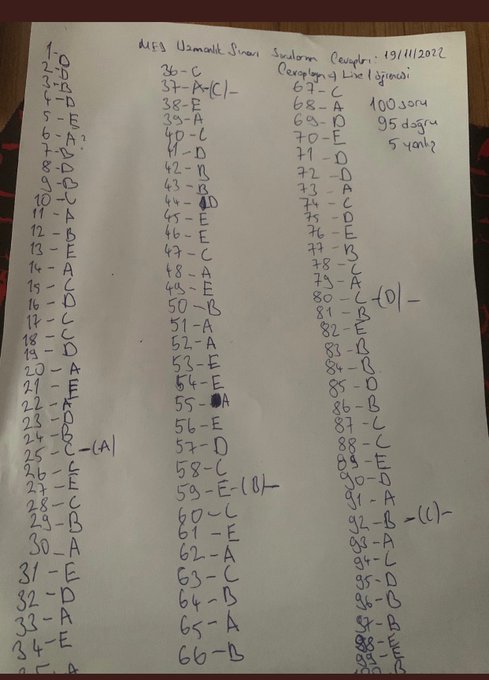 MEB Uzmanlık Sınavı Soruların Cevapları: 19/11/2022
Cevaplayan: Lise 1 öğrencisi
100 soru
95 doğru
5 yanlış
1-D
2-D
3-B
4-D
5-E
6-A?
7-B
8-D
9-B
10-C
11-A
12-B
13-E
14-A
15-C
16-D
17-C
18-C
19-D
20-A
21-E
22-A
23-D
24-B
25-C-(A)
26-C
27-E
28-C
29-B
30-A
31-E
32-D
33-A
34-E
35-A
36-C
37-A-(C)-
38-E
39-A
40-C
41-D
42-B
43-B
44-D
45-E
46-E
47-C
48-A
49-E
50-B
51-A
52-A
53-E
54-E
55-A
56-E
57-D
58-C
59-E-(B)-
60-C
61-E
62-A
63-C
64-B
65-A
66-B
67-C
68-A
69-D
70-E
71-D
72-D
73-A
74-C
75-D
76-E
77-B
78-C
79-A
80-C-(D)-
81-B
82-E
83-B
84-B
85-D
86-B
87-C
88-C
89-E
90-D
91-A
92-B-(C)-
93-A
94-C
95-D
96-B
97-B
98-E